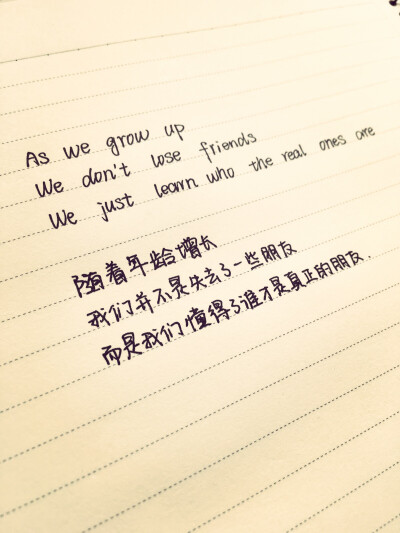 As we grow up
We don't lose friends
We just learn who the real ones are
随着年龄增长
我们并不是失去了一些朋友
而是我们懂得了谁才是真正的朋友.